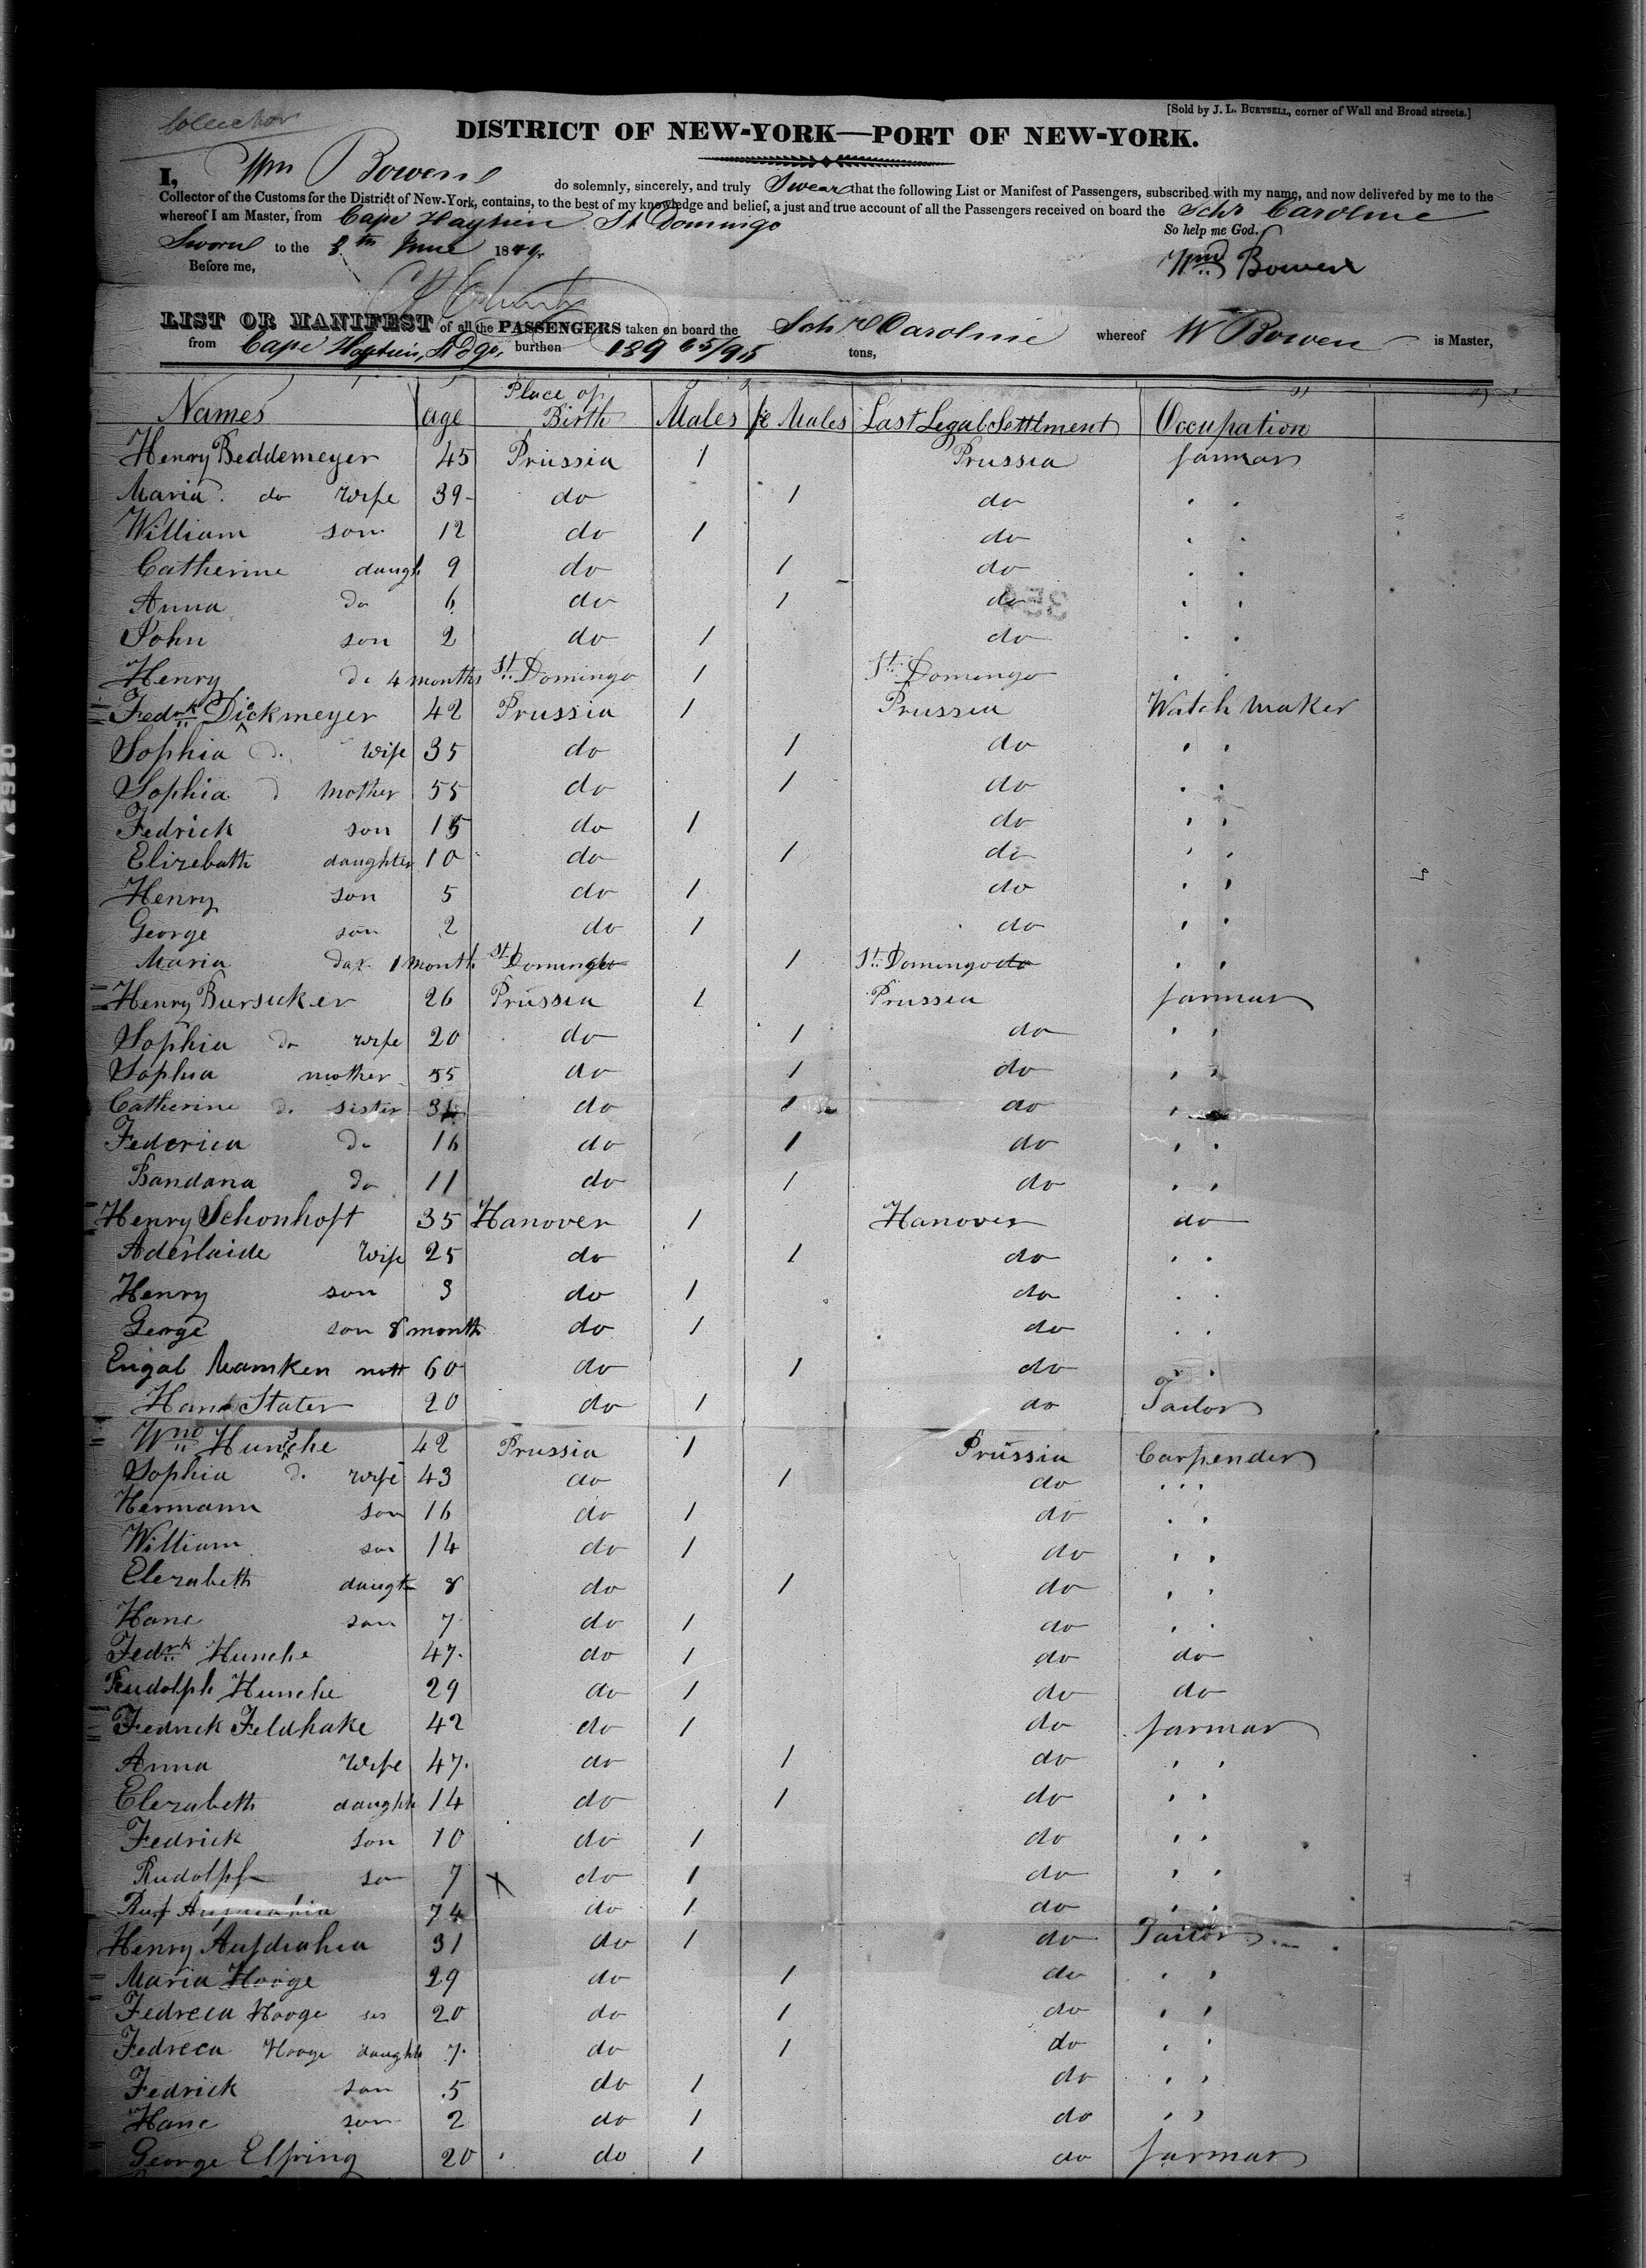 Collector
[Sold by J. L. BURTSELL, corner of Wall and Broad streets.]
DISTRICT OF NEW-YORK—PORT OF NEW-YORK.
I, Wm Bowen do solemnly, sincerely, and truly Swear that the following List or Manifest of Passengers, subscribed with my name, and now delivered by me to the
Collector of the Customs for the District of New-York, contains, to the best of my knowledge and belief, a just and true account of all the Passengers received on board the Schr Caroline
whereof I am Master, from Cape Haytien St Domingo
So help me God.
Sworn to the 8th June 1844. Wm Bowen
Before me,
LIST OR MANIFEST of all the PASSENGERS taken on board the Schr Caroline whereof W Bowen is Master,
from Cape Haytien, St Dgo, burthen 189 65/95 tons,
Names age Place of Birth Males fe Males Last Legal Settlment Occupation
Henry Beddemeyer 45 Prussia 1 Prussia farmar
Maria do wife 39 do 1 do " "
William son 12 do 1 do " "
Catherine daugh 9 do 1 do " "
Anna do 6 do 1 do " "
John son 2 do 1 do " "
Henry do 4 months St. Domingo 1 St. Domingo "
Fedrk Dickmeyer 42 Prussia 1 Prussia Watch maker
Sophia d. wife 35 do 1 do " "
Sophia d mother 55 do 1 do " "
Fedrick son 15 do 1 do " "
Elizebath daughter 10 do 1 do " "
Henry son 5 do 1 do " "
George son 2 do 1 do " "
Maria da 1 month St Domingo 1 St. Domingo do " "
Henry Bursuker 26 Prussia 1 Prussia farmar
Sophia do wife 20 do 1 do " "
Sophia mother 55 do 1 do " "
Catherine d. sister do 1 do "
Federica do 16 do 1 do " "
Bandana do 11 do 1 do " "
Henry Schonhoft 35 Hanover 1 Hanover do
Adeslaide Wife 25 do 1 do " "
Henry son 3 do 1 do " "
George son 8 month do 1 do " "
Engal Mamken 60 do 1 do " "
Hane Stater 20 do 1 do Tailor
Wm Hunsche 42 Prussia 1 Prussia Carpender
Sophia d. wife 43 do 1 do " "
Hermann son 16 do 1 do " "
William son 14 do 1 do " "
Elezabeth daught 8 do 1 do " "
Hane son 7 do 1 do " "
Fedrk Hunche 47 do 1 do do
Rudolph Hunche 29 do 1 do do
Fedrick Feldhake 42 do 1 do farmar
Anna Wife 47 do 1 do " "
Elezabeth daught 14 do 1 do " "
Fedrick son 10 do 1 do " "
Rudolph son 7 X do 1 do " "
74 do 1 do " "
Henry Aufdiahea 31 do 1 do Tailor
Maria Hooge 29 do 1 do " "
Fedreca Hooge sis 20 do 1 do " "
Fedreca Hooge daught 7 do 1 do " "
Fedrick son 5 do 1 do " "
Hane son 2 do 1 do " "
George Elfring 20 do 1 do farmar
DUPONT SAFETY ▲ 2920